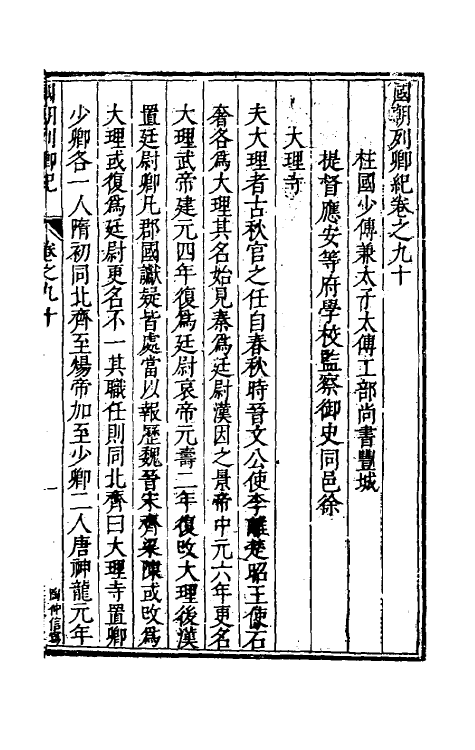 國朝列卿紀卷之九十
柱國少傅兼太子太傅工部尚書豐城
提督應安等府學校監察御史同邑徐
大理寺
夫大理者古秋官之任自春秋時晉文公使李離楚昭王使石
奢各為大理其名始見秦為廷尉漢因之景帝中元六年更名
大理武帝建元四年復為廷尉哀帝元壽二年復改大理後漢
置廷尉卿凡郡國讞疑皆處當以報歷魏晉宋齊梁陳或改為
大理或復為廷尉更名不一其職任則同北齊曰大理寺置卿
少卿各一人隋初同北齊至煬帝加至少卿二人唐神龍元年
國朝列卿紀
卷之九十
一
陶仲信寫